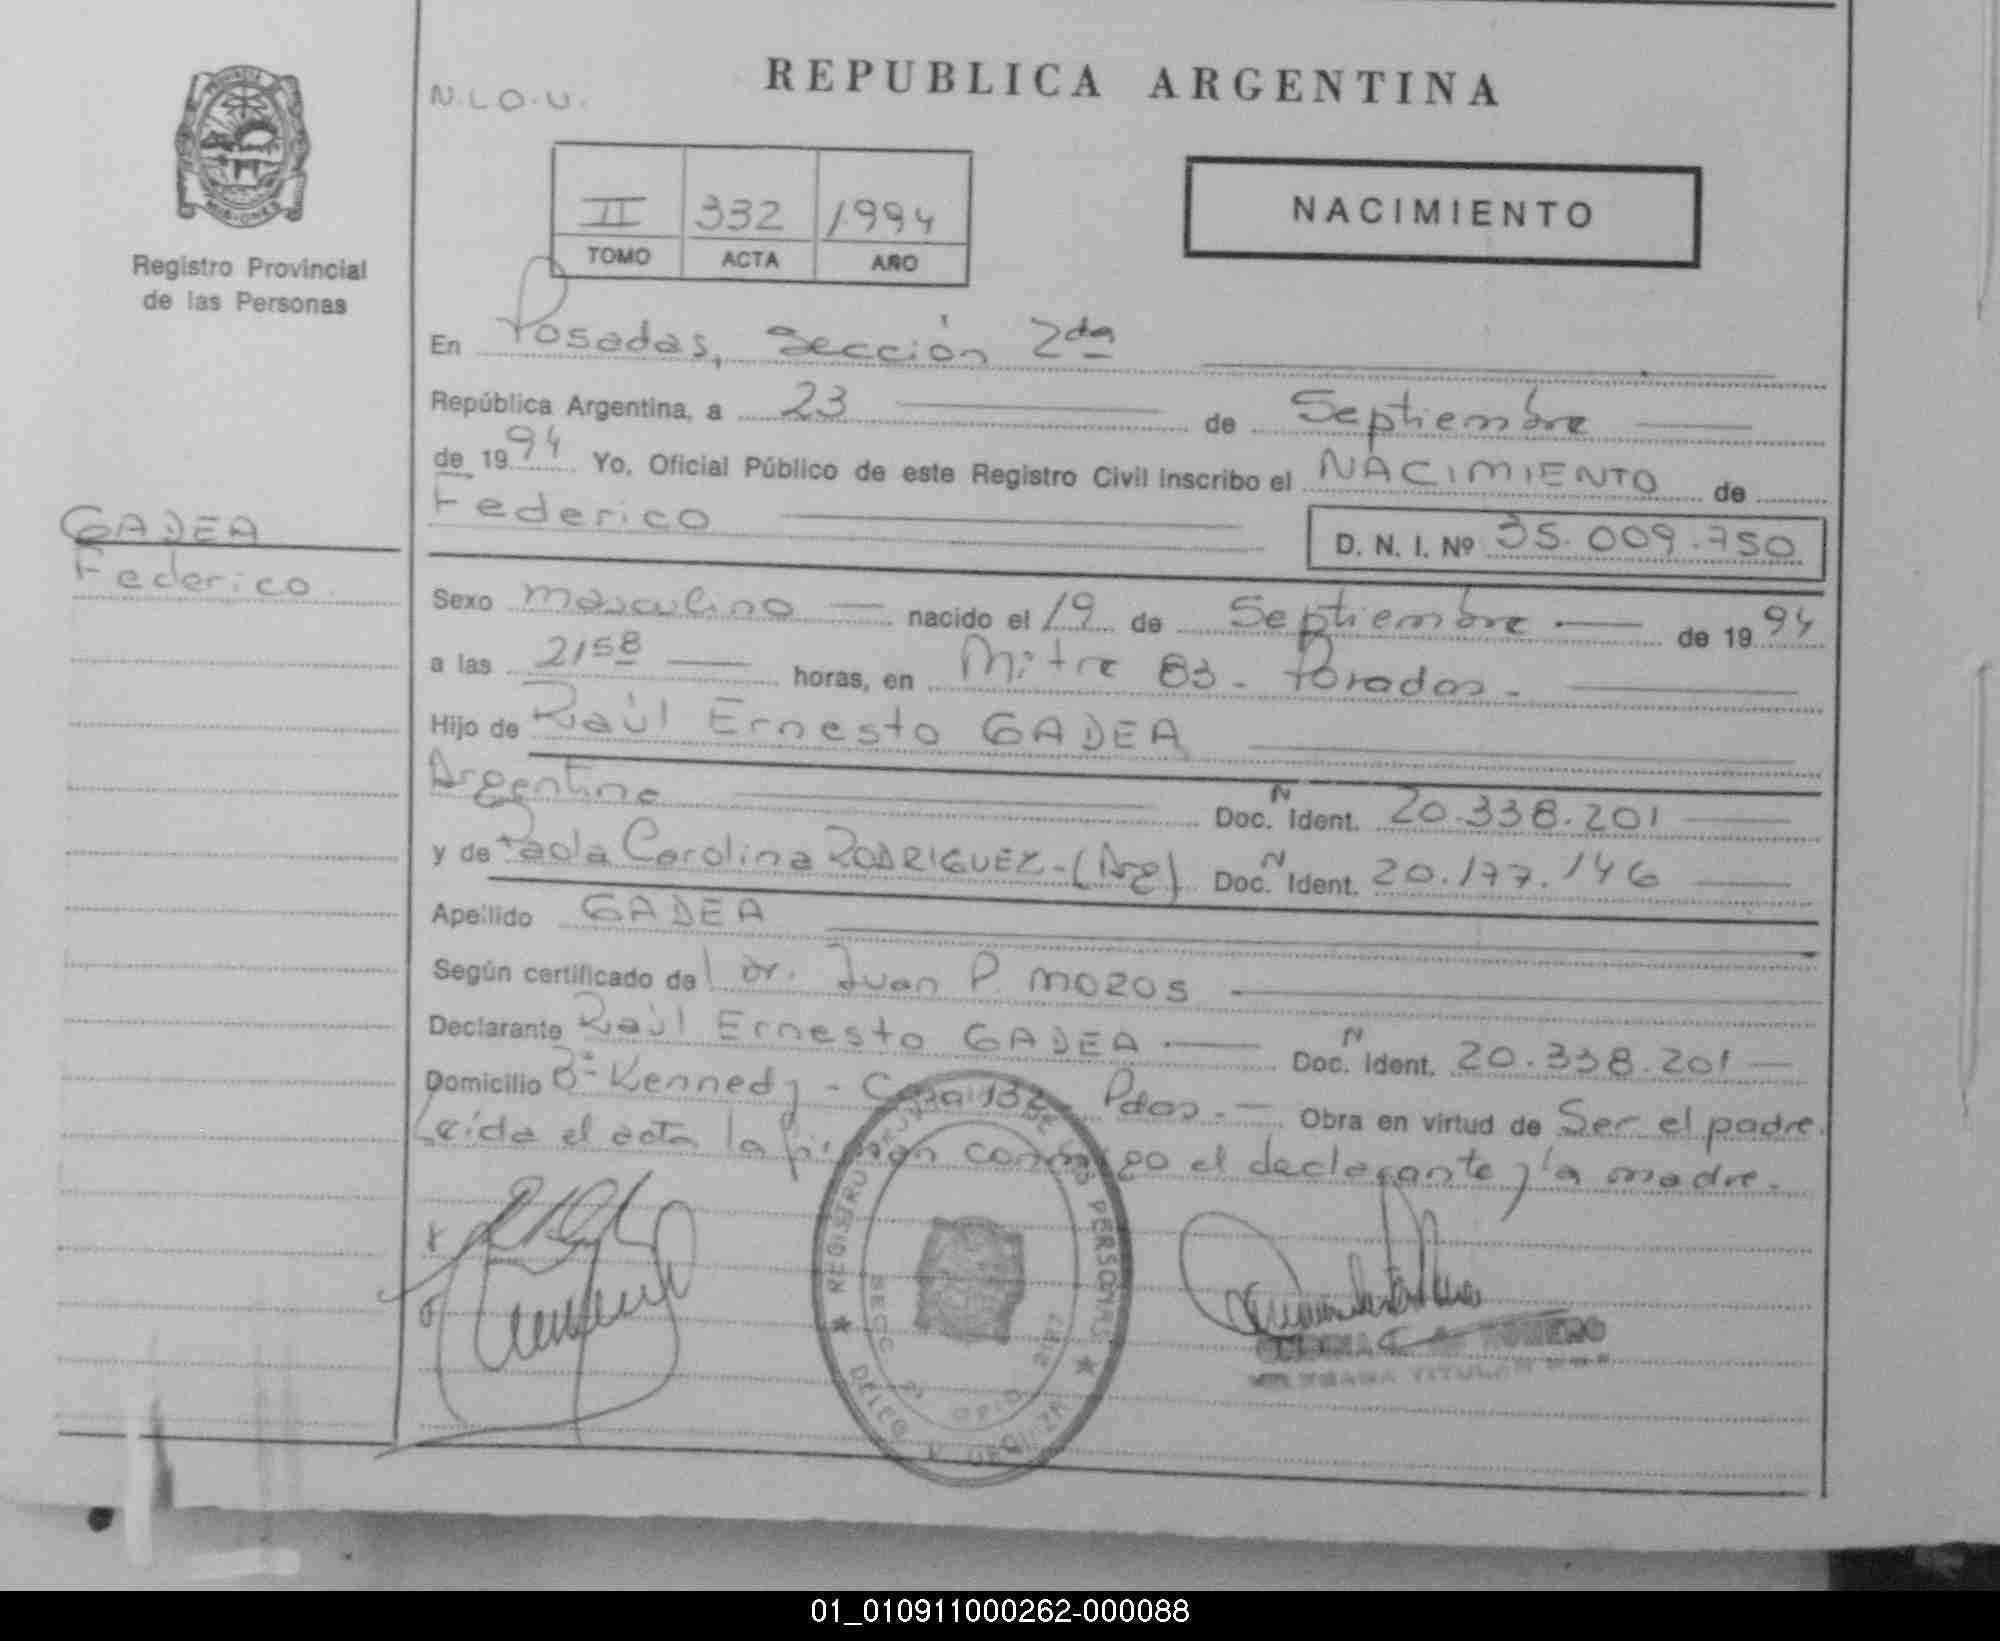 REPUBLICA ARGENTINA
N.L.O.U.
II 332 1994
TOMO ACTA AÑO
NACIMIENTO
MISIONES
Registro Provincial
de las Personas
En Posadas, Sección 2da
República Argentina, a 23 de Septiembre
de 1994 Yo, Oficial Público de este Registro Civil Inscribo el NACIMIENTO de
Federico D. N. I. Nº 35.009.750
GADEA
Federico
Sexo masculino nacido el 19 de Septiembre de 1994
a las 2158 horas, en Mitre 83 - Posadas -
Hijo de Raúl Ernesto GADEA
Argentino Doc. N Ident. 20.338.201
y de Paola Carolina RODRIGUEZ - (Arg) Doc. N Ident. 20.177.146
Apellido GADEA
Según certificado del Dr. Juan P. MOZOS
Declarante Raúl Ernesto GADEA Doc. N Ident. 20.338.201
Domicilio Bº Kennedy - Casa 132 Pdas. Obra en virtud de Ser el padre.
Leída el acta la firman conmigo el declarante y la madre.
REGISTRO DE LAS PERSONAS
SECC
ROMERO
TITULAR
01_010911000262-000088